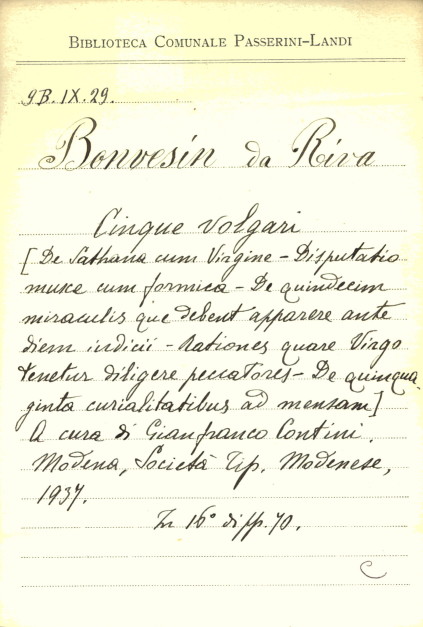 BIBLIOTECA COMUNALE PASSERINI-LANDI
9B.IX.29.
Bonvesin da Riva
Cinque volgari
[De Sathana cum Virgine - Disputatio
muske cum formica - De quindecim
miraculis que debent apparere ante
diem iudicii - Rationes quare Virgo
tenetur diligere peccatores - De quinqua
ginta curialitatibus ad mensam]
A cura di Gianfranco Contini.
Modena, Società Tip. Modenese,
1937.
In 16° di pp. 70.
C